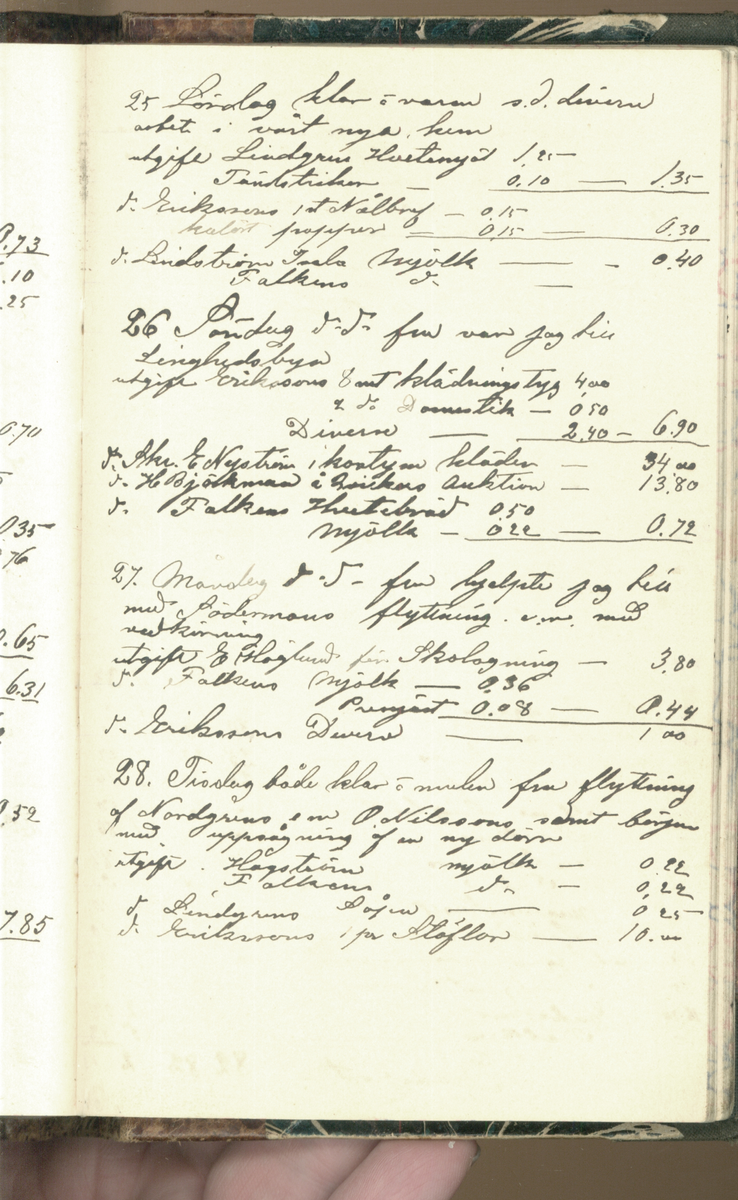 0.73
.10
.25
0.70
0.35
76
0.65
6.31
0.52
7.85
25 Lördag klar o varm s.d. divern
arbete i vårt nya hem
utgift Lindgren Hvetemjöl 1.25
Tändstickor — 0.10 — 1.35
d. Erikssons 1 st Nålbref — 0.15
papper — 0.15 — 0.30
d. Lindström Mjölk — 0.40
Falkens d. —
26 Söndag d. d. fm var jag till
Linghedsbyn
utgift Erikssons 8 mt klädningstyg 4,00
2 d. Domestik — 0.50
Diverse — 2.40 — 6.90
d. Skr. E Nyström 1 kostym kläder — 34.00
d. H Björkman å Auktion — 13.80
d. Falkens Hvetebröd 0.50
Mjölk — 0.22 — 0.72
27. Måndag d. d. fm hjelpte jag till
med Södermans flyttning. e.m. med
vedkörning
utgift E Höglund för Skolagning — 3.80
d. Falkens Mjölk — 0.36
Presjäst 0.08 — 0.44
d. Erikssons Diverse — 1.00
28. Tisdag både klar o mulen fm flyttning
af Nordgrens em O Nilssons samt börjen
med uppsågning af en ny dörr
utgift. Hagström mjölk — 0.22
Falkens d. — 0.22
d. Lindgrens Såpa — 0.25
d. Erikssons 1 pr Stöflor — 10.00